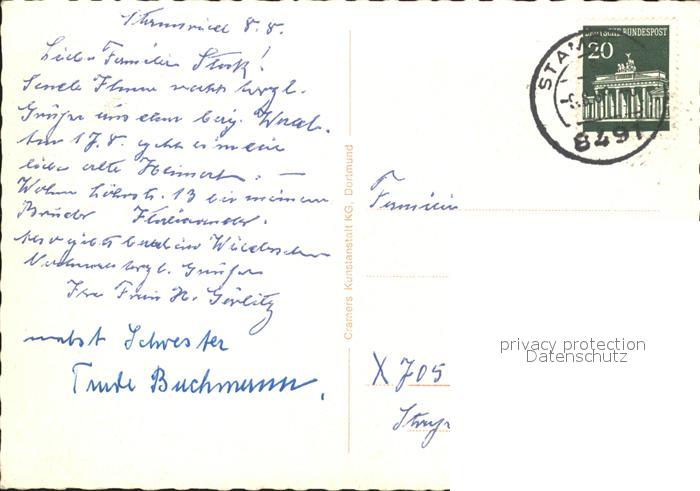 Stamsried 8.8.
Liebe Familie Stock!
Sende Ihnen herzl.
Grüße aus dem bay. Wald.
Am 17.8. geht es in die
liebe alte Heimat. —
Wohne 13 bei meinem
Bruder
Also gibt bald ein Wiedersehen
Nochmals herzl. Grüße
Ihre Frau H. Görlitz
nebst Schwester
Trude Buchmann.
Cramers Kunstanstalt KG, Dortmund
DEUTSCHE BUNDESPOST
20
STAMS
8491
Familie
X 705
Straße
privacy protection
Datenschutz